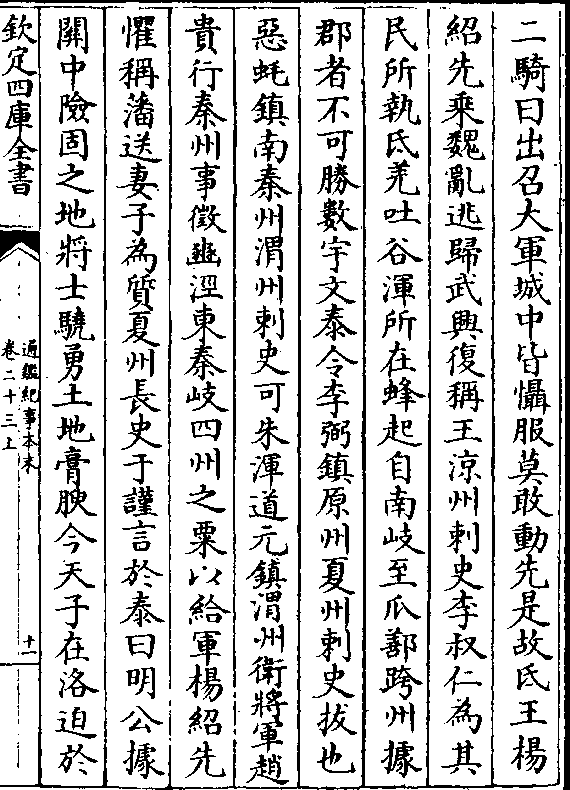 二騎曰出召大軍城中皆懾服莫敢動先是故氐王楊
紹先乘魏亂逃歸武興復稱王涼州刺史李叔仁為其
民所執氐羌吐谷渾所在蜂起自南岐至瓜鄯跨州據
郡者不可勝數宇文泰令李弼鎮原州夏州刺史拔也
惡蚝鎮南秦州渭州刺史可朱渾道元鎮渭州衛將軍趙
貴行秦州事徵豳涇東秦岐四州之粟以給軍楊紹先
懼稱藩送妻子為質夏州長史于謹言於泰曰明公據
關中險固之地將士驍勇土地膏腴今天子在洛迫於
欽定四庫全書
通鑑紀事本末
卷二十三上
十一